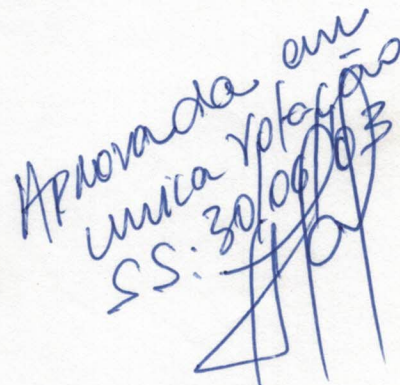 Aprovada em
unica votação
SS: 30.06.03